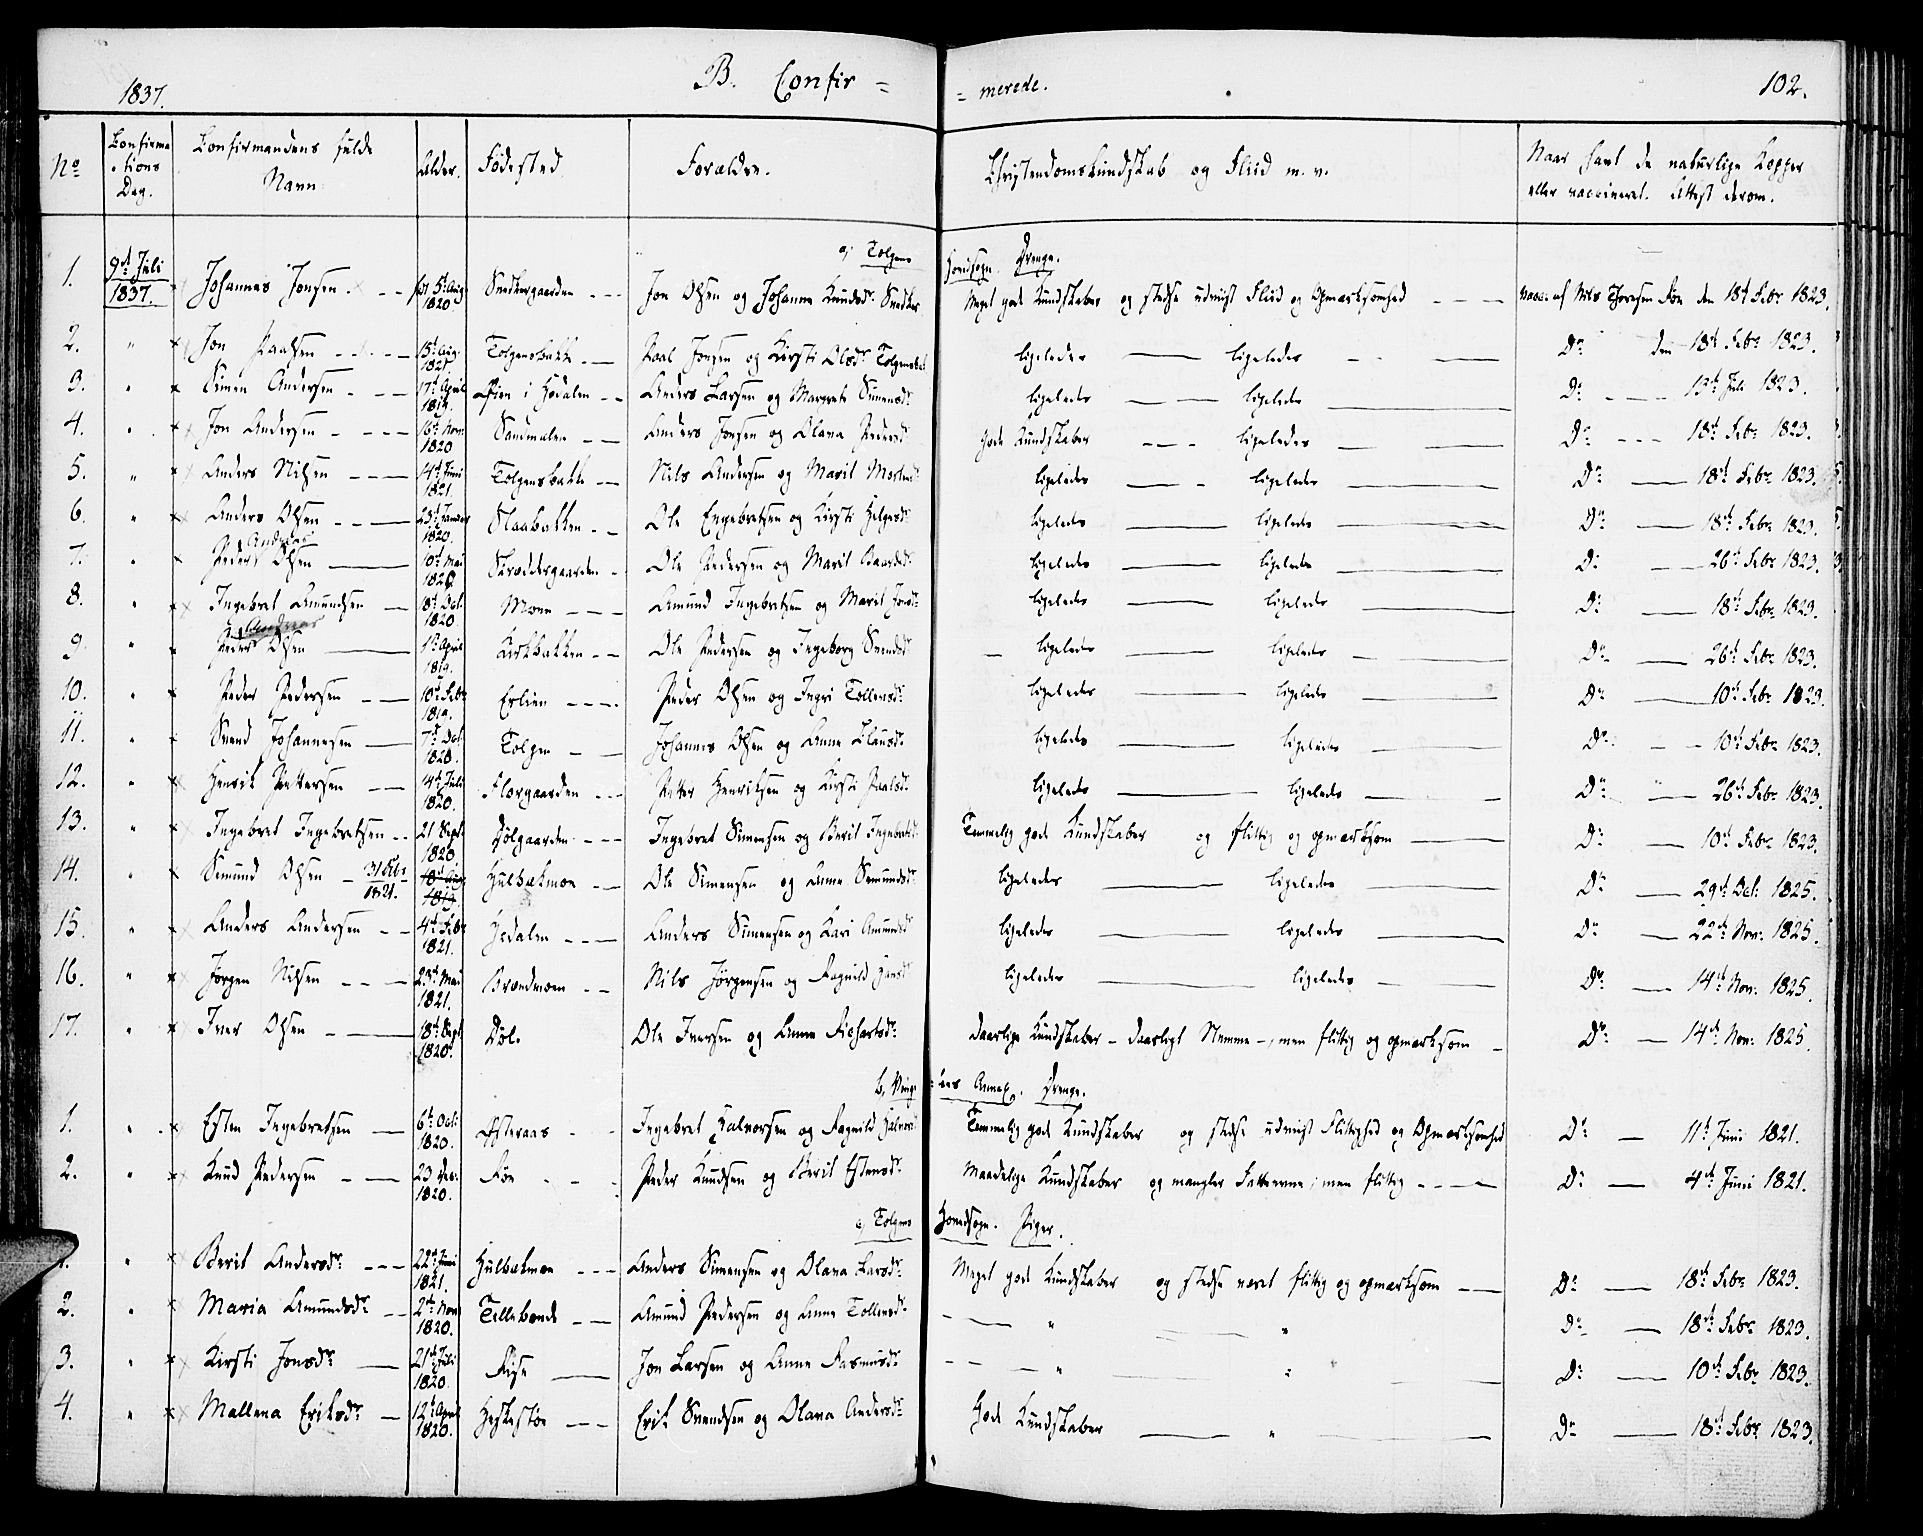 1837. B. Confir= =merede. 102.
No Confirma-tions Dag. Confirmandens fulde Navn. Alder. Fødested. Forældre. Christendomskundskab og Fliid m. v. Naar havt de naturlige Kopper eller vaccineret. Attest derom.
a) Tolgens Hovedsogn. Drenge.
1. 9de Juli 1837. Johannes Jonsen 5te Aug 1820. Snedkergaarden Jon Olsen og Johanne Knudsdr. Snedker Meget gode Kundskaber og stedse udviist Fliid og Opmærksomhed Vacc. af Nils Thoresen Foe den 18de Febr 1823.
2. " Jon Paalsen 15de Aug. 1821. Tolgensbakke Paal Jonsen og Kirsti Olsdr. Tolgensbak ligeledes ligeledes Do den 18de Febr 1823.
3. " Simen Andersen 17de April 1819. Øien i Hodalen Anders Larsen og Margrete Simensdr ligeledes ligeledes Do 13de Juli 1823.
4. " Jon Andersen 16de Nov. 1820 Sandmælen Anders Jonsen og Olava Pedersdr gode Kundskaber ligeledes Do 18de Febr 1823.
5. " Anders Nilsen 14de Juni 1821. Tolgensbakke Nils Andersen og Marit Mortensdr ligeledes ligeledes Do 18de Febr 1823.
6. " Anders Olsen 23de Januar 1820. Slaabakken Ole Engebretsen og Kirsti Helgesdr ligeledes ligeledes Do 18de Febr 1823.
7. " Peder Andreas Olsen 10de Mai 1820. Skreddergaarden Ole Pedersen og Marit Baardsdr ligeledes ligeledes Do 26de Febr 1823.
8. " Ingebret Amundsen 18de Oct. 1820 Moen Amund Ingebretsen og Marit Jonsdr ligeledes ligeledes Do 18de Febr 1823.
9. " Peder Andreas Olsen 1ste April 1819. Kirkbakken Ole Pedersen og Ingeborg Svendsdr ligeledes ligeledes Do 26de Febr 1823.
10. " Peder Pedersen 10de Febr 1819. Erlien Peder Olsen og Ingri Tollensdr ligeledes ligeledes Do 10de Febr 1823.
11. " Svend Johannesen 7de Oct 1820. Tolgen Johannes Olsen og Anne Clausdr. ligeledes ligeledes Do 10de Febr 1823.
12. " Henrik Pettersen 14de Juli 1820. Florgaarden Petter Henriksen og Kirsti Paalsdr. ligeledes ligeledes Do 26de Febr 1823.
13. " Ingebret Ingebretsen 21 Sept. 1820 Dølgaarden Ingebret Simensen og Berit Ingebretsdr Temmelig gode Kundskaber og flittig og opmærksom Do 10de Febr 1823.
14. " Simund Olsen 1821. 18de Aug 1819. Hulbækmoe Ole Simensen og Anne Semundsdr. ligeledes ligeledes Do 29de Oct. 1825.
15. " Anders Andersen 4de Febr 1821. Hodalen Anders Simensen og Kari Amundsdr ligeledes ligeledes Do 22de Nov. 1825.
16. " Jørgen Nilsen 23de Mai 1821. Brændmoen Nils Jørgensen og Ragnild Hansdr ligeledes ligeledes Do 14de Nov. 1825.
17. " Iver Olsen 18de Sept 1820. Døl. Ole Iversen og Anne Richartsdr. daarlige Kundskaber - daarligt Nemme - men flittig og opmærksom Do 14de Nov. 1825.
b, Vinge=lens Annex. Drenge.
1. " Esten Ingebretsen 6te Oct. 1820. Østeraas Ingebret Halvorsen og Ragnild Halvorsdr Temmelig gode Kundskaber og stedse udviist Flittighed og Opmærksomhed Do 11te Juni 1821.
2. " Knud Pedersen 23 Dec. 1820. Røe Peder Knudsen og Berit Estensdr. Maadelige Kundskaber og mangler Fatteevne; men flittig Do 4de Juni 1821.
c) Tolgens Hovedsogn. Piger.
1. " Berit Andersdr. 22de Juni 1821. Hulbækmoe Anders Simensen og Olava Larsdr. Meget gode Kundskaber og stedse været flittig og opmærksom Do 18de Febr 1823.
2. " Maria Amundsdr. 2de Nov. 1820. Tillebonde Amund Pedersen og Anne Tollensdr. " " Do 18de Febr 1823.
3. " Kirsti Jonsdr. 21de Juli 1820. Riise Jon Larsen og Anne Rasmusdr. " " Do 10de Febr 1823.
4. " Mallena Eriksdr. 12te April 1820. Erik Svendsen og Olava Andersdr. Gode Kundskaber " Do 18de Febr 1823.